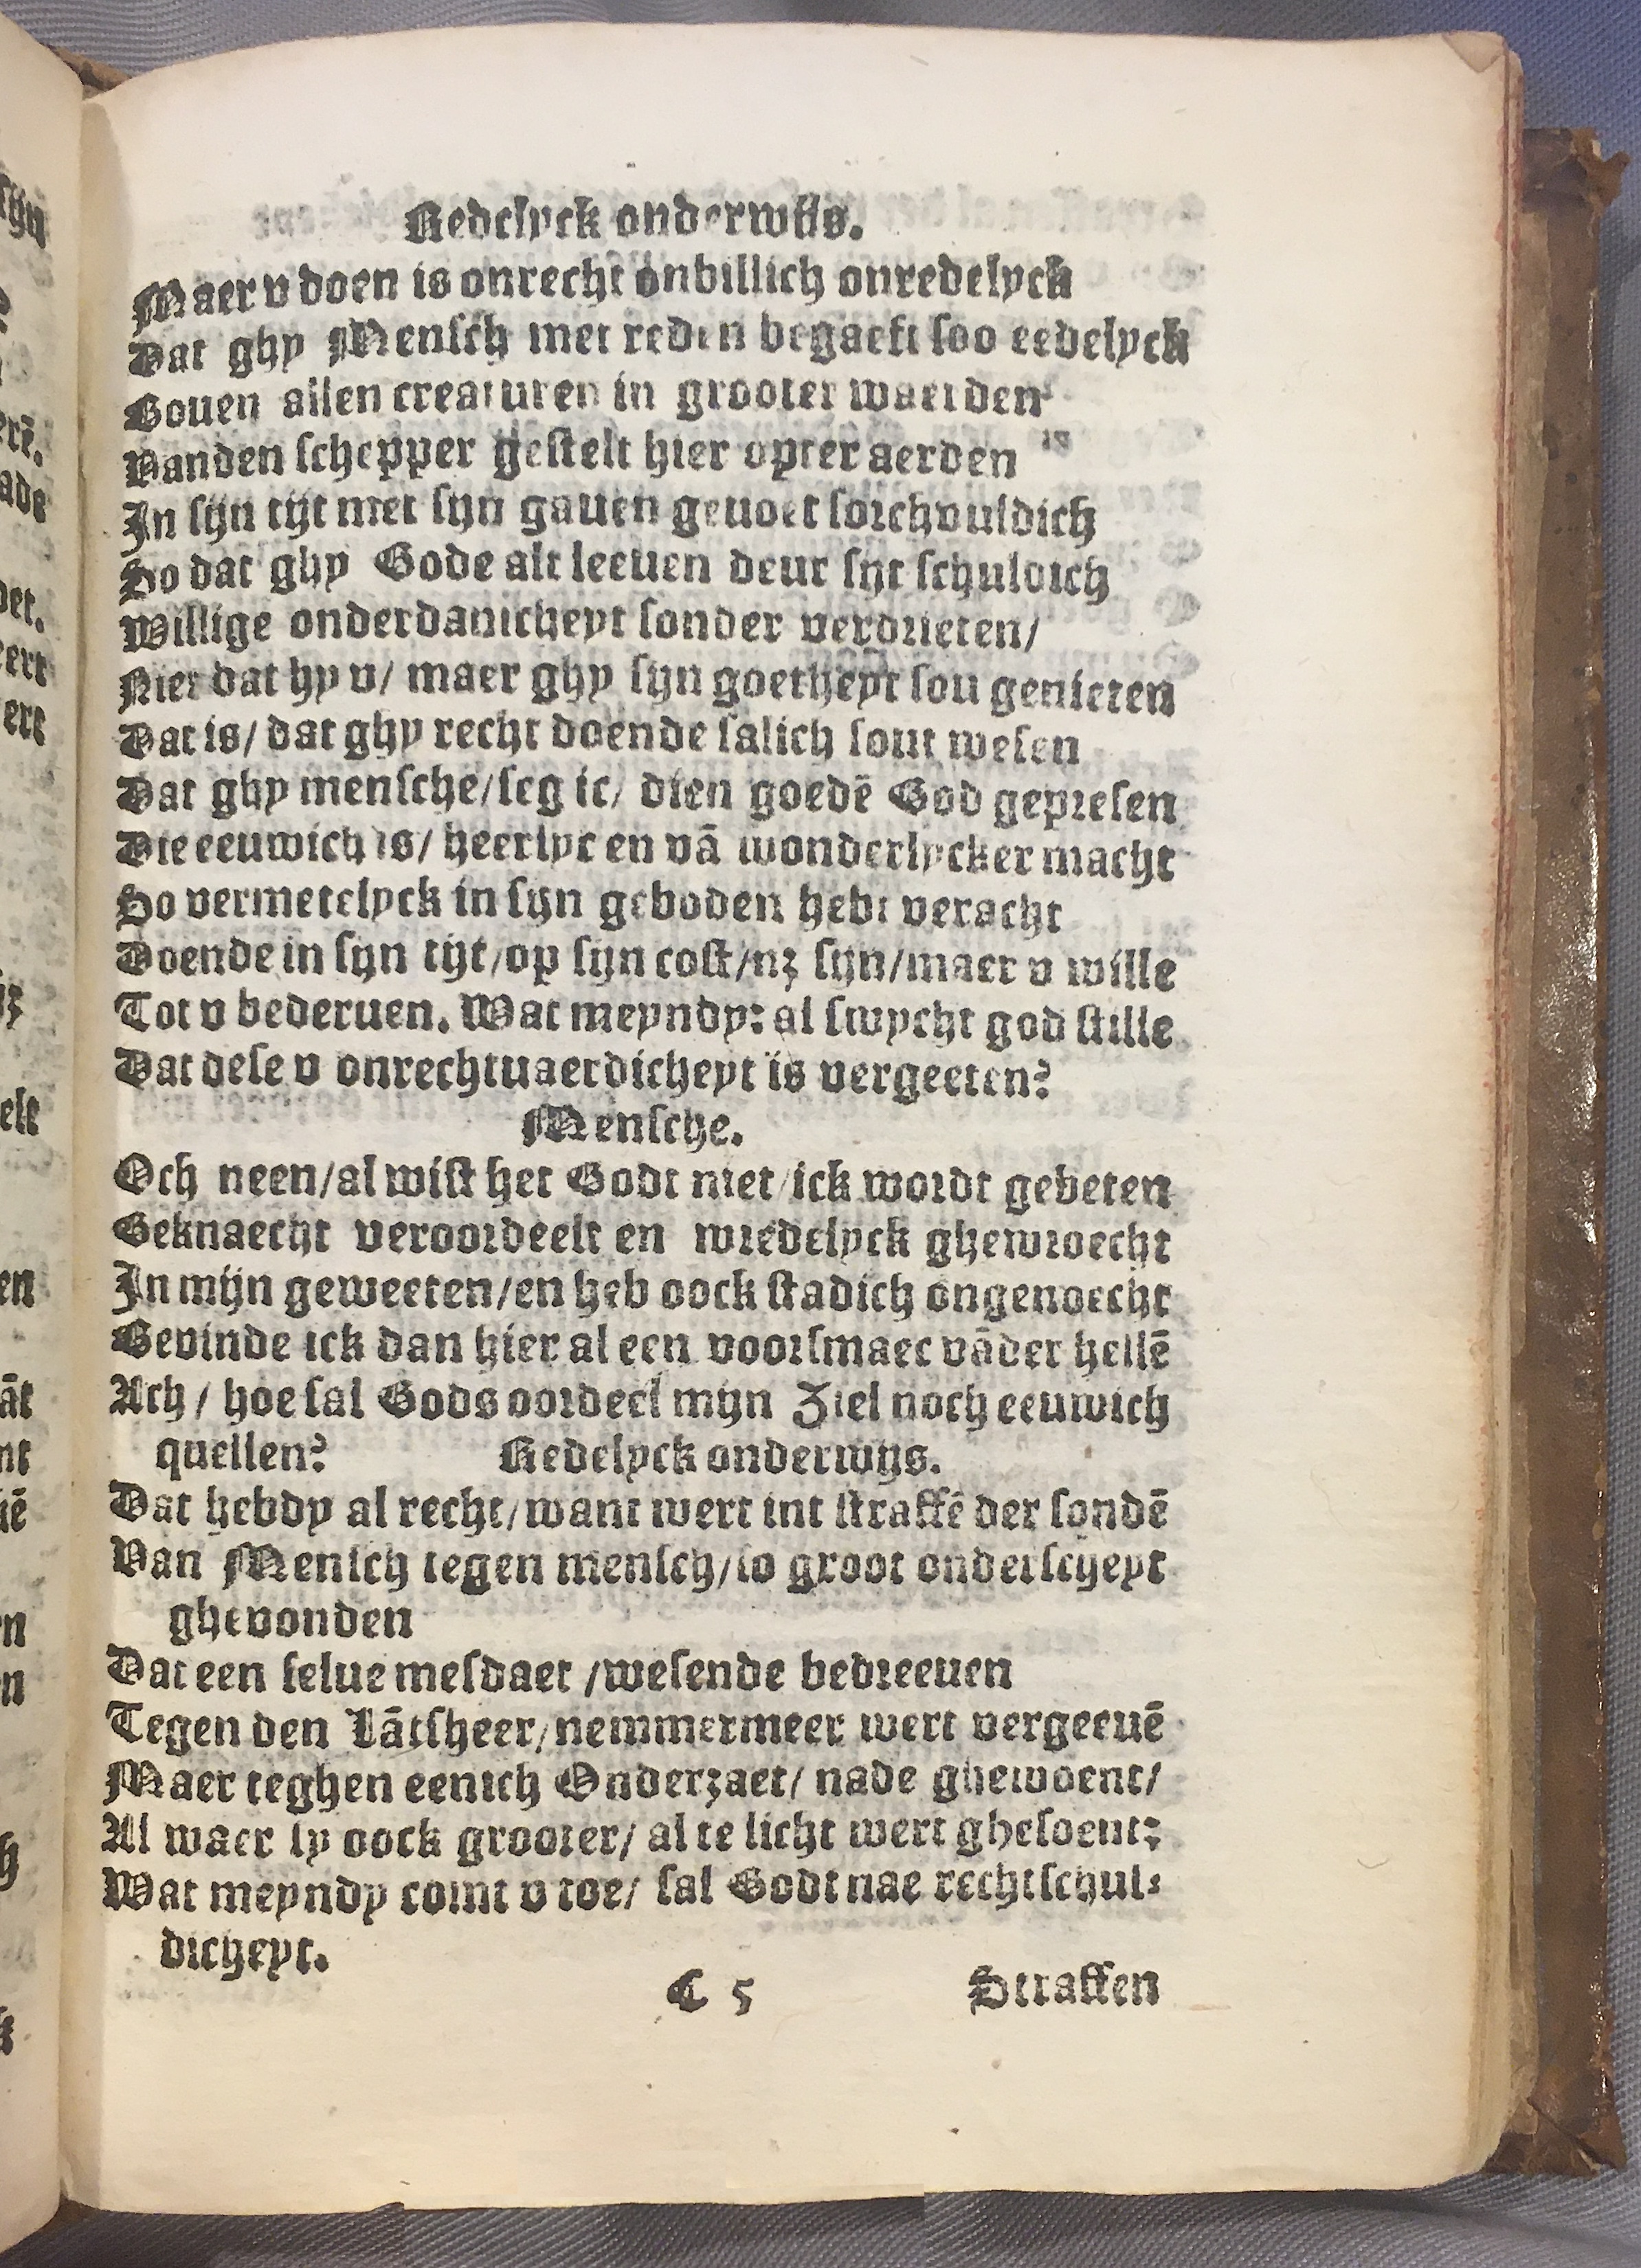 Redelyck onderwijs.
Maer v doen is onrecht onbillich onredelyck
Dat ghy Mensch met reden begaeft soo eedelyck
Bouen allen creaturen in grooter waerden
Vanden schepper gestelt hier opter aerden
In sijn tijt met sijn gauen geuoet sorchvuldich
So dat ghy Gode alt leeuen deur sijt schuldich
Willige onderdanicheyt sonder verdrieten/
Niet dat hy v/ maer ghy sijn goetheyt sou genieten
Dat is/ dat ghy recht doende salich sout wesen
Dat ghy mensche/seg ic/ dien goedē God gepresen
Die eeuwich is/ heerlyc en vā wonderlycker macht
So vermetelyck in sijn geboden hebt veracht
Doende in sijn tijt/op sijn cost/nz sijn/maer v wille
Tot v bederuen. Wat meyndy: al swycht god stille
Dat dese v onrechtuaerdicheyt is vergeeten?
Mensche.
Och neen/al wist het Godt niet/ick wordt gebeten
Geknaecht veroordeelt en wredelyck ghewroecht
In mijn geweeten/en heb oock stadich ongenoecht
Bevinde ick dan hier al een voorsmaec vāder hellē
Ach/ hoe sal Gods oordeel mijn Ziel noch eeuwich
quellen? Redelyck onderwijs.
Dat hebdy al recht/want wert int straffē der sondē
Van Mensch tegen mensch/so groot onderscheyt
ghevonden
Dat een selue mesdaet /wesende bedreeuen
Tegen den Lātsheer/nemmermeer wert vergeeuē
Maer teghen eenich Onderzaet/ nade ghewoent/
Al waer sy oock grooter/ al te licht wert ghesoent:
Wat meyndy comt v toe/ sal Godt nae rechtschul-
dicheyt.
C 5 Straffen